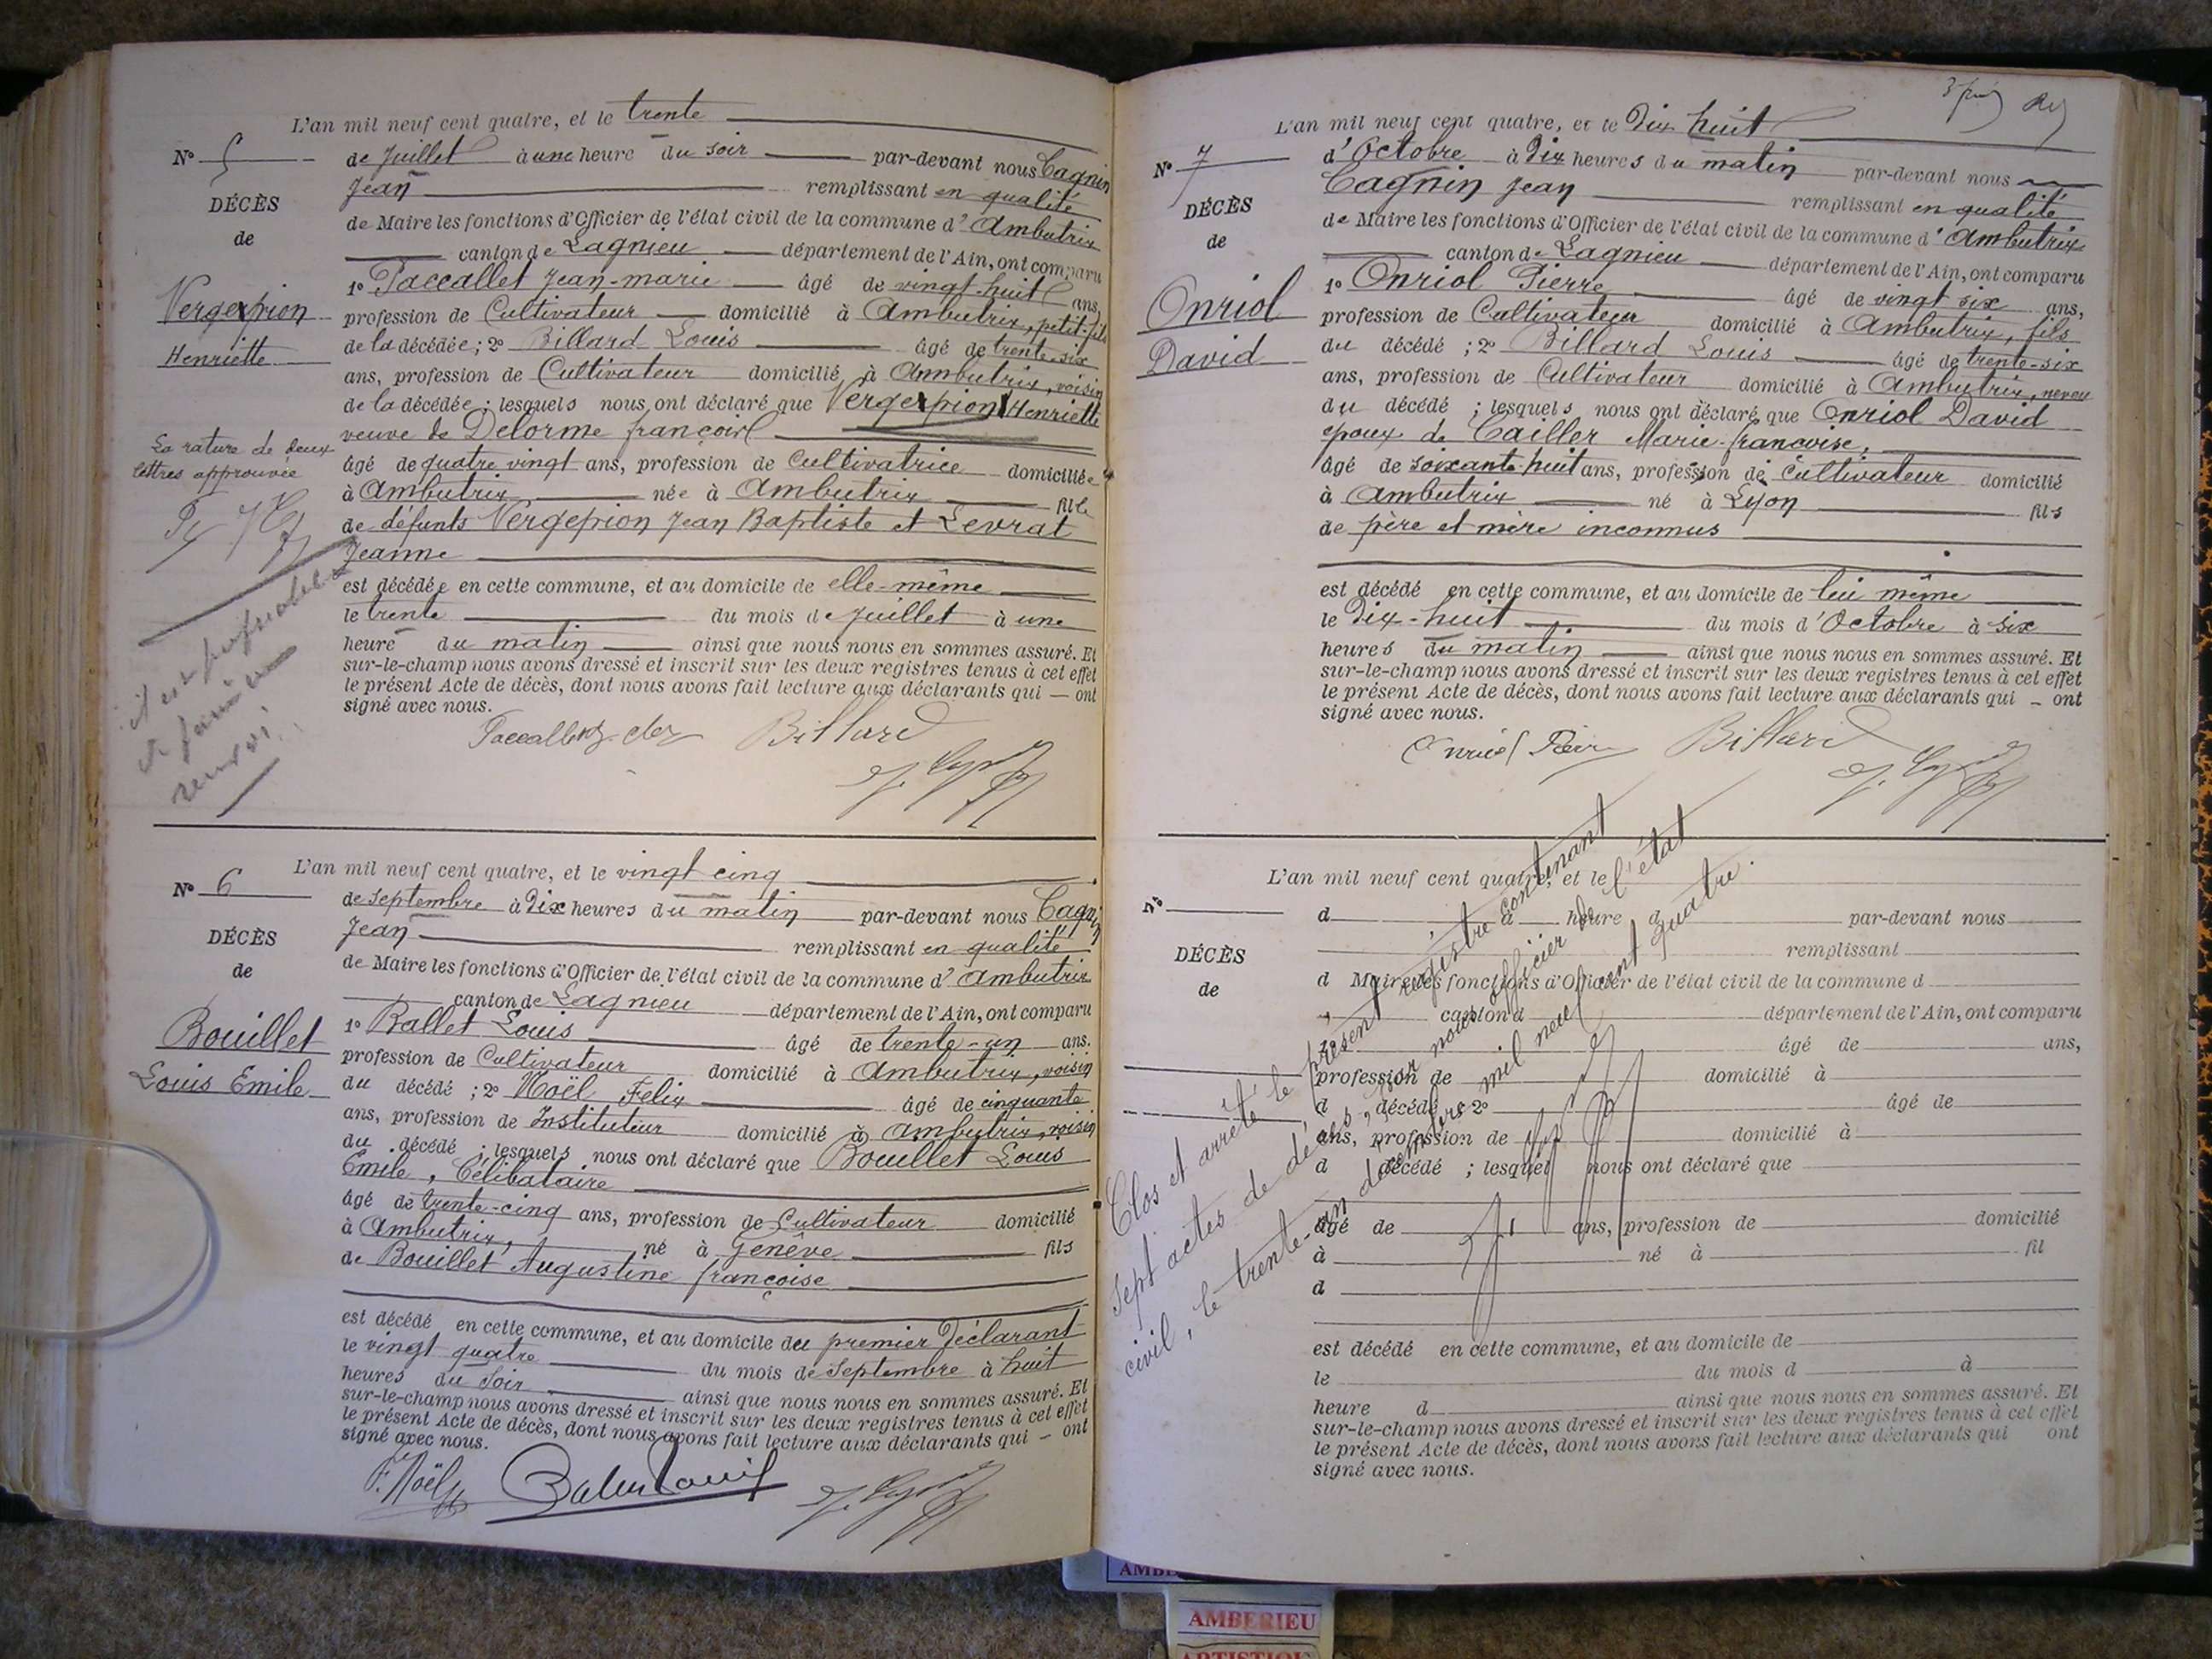 L'an mil neuf cent quatre, et le trente
N° 5
de Juillet à une heure du soir par-devant nous Cagnin
Jean remplissant en qualité
DÉCÈS
de Maire les fonctions d'Officier de l'état civil de la commune d'Ambutrix
de
canton de Lagnieu département de l'Ain, ont comparu
1° Paccallet Jean-marie âgé de vingt-huit ans,
Vergexpion
profession de Cultivateur domicilié à Ambutrix, petit-fils
de la décédée ; 2° Billard Louis âgé de trente-six
Henriette
ans, profession de Cultivateur domicilié à Ambutrix, voisin
de la décédée ; lesquels nous ont déclaré que Vergexpion Henriette
veuve de Delorme françois
La rature de deux
lettres approuvée
âgé de quatre vingt ans, profession de Cultivatrice domiciliée
à Ambutrix, née à Ambutrix fille
de défunts Vergepion Jean Baptiste et Levrat
Jeanne
est décédée en cette commune, et au domicile de elle-même
le trente du mois de Juillet à une
heure du matin ainsi que nous nous en sommes assuré. Et
sur-le-champ nous avons dressé et inscrit sur les deux registres tenus à cet effet
le présent Acte de décès, dont nous avons fait lecture aux déclarants qui — ont
signé avec nous.
il est
de faire un
renvoi
Billard
L'an mil neuf cent quatre, et le vingt cinq
N° 6
de Septembre à Dix heures du matin par-devant nous Cagnin
Jean remplissant en qualité
DÉCÈS
de Maire les fonctions d'Officier de l'état civil de la commune d'Ambutrix
de
canton de Lagnieu département de l'Ain, ont comparu
Bouillet
1° Ballet Louis âgé de trente-un ans.
profession de Cultivateur domicilié à Ambutrix, voisin
Louis Emile
du décédé ; 2° Noël Felix âgé de cinquante
ans, profession de Instituteur domicilié à Ambutrix, voisin
du décédé ; lesquels nous ont déclaré que Bouillet Louis
Emile, Célibataire
âgé de trente-cinq ans, profession de Cultivateur domicilié
à Ambutrix, né à Genêve fils
de Bouillet Augustine françoise
est décédé en cette commune, et au domicile du premier Déclarant
le vingt quatre du mois de Septembre à huit
heures du Soir ainsi que nous nous en sommes assuré. Et
sur-le-champ nous avons dressé et inscrit sur les deux registres tenus à cet effet
le présent Acte de décès, dont nous avons fait lecture aux déclarants qui — ont
signé avec nous.
F. Noël
L'an mil neuf cent quatre, et le Dix huit
N° 7
d'Octobre à Dix heures du matin par-devant nous
Cagnin Jean remplissant en qualité
DÉCÈS
de Maire les fonctions d'Officier de l'état civil de la commune d'Ambutrix
de
canton de Lagnieu département de l'Ain, ont comparu
Onriol
1° Onriol Pierre âgé de vingt six ans,
profession de Cultivateur domicilié à Ambutrix, fils
David
du décédé ; 2° Billard Louis âgé de trente-six
ans, profession de Cultivateur domicilié à Ambutrix, neveu
du décédé ; lesquels nous ont déclaré que Onriol David
époux de Cailler Marie-francoise,
âgé de soixante-huit ans, profession de Cultivateur domicilié
à Ambutrix né à Lyon fils
de père et mère inconnus
est décédé en cette commune, et au domicile de lui même
le Dix-huit du mois d'Octobre à six
heures du matin ainsi que nous nous en sommes assuré. Et
sur-le-champ nous avons dressé et inscrit sur les deux registres tenus à cet effet
le présent Acte de décès, dont nous avons fait lecture aux déclarants qui — ont
signé avec nous.
Onriol Pierre Billard
L'an mil neuf cent quatre, et le
N°
d à heure d par-devant nous
remplissant
DÉCÈS
d Maire les fonctions d'Officier de l'état civil de la commune d
de
canton d département de l'Ain, ont comparu
1° âgé de ans,
profession de domicilié à
d décédé ; 2° âgé de
ans, profession de domicilié à
d décédé ; lesquel nous ont déclaré que
âgé de ans, profession de domicilié
à né à fil
d
est décédé en cette commune, et au domicile de
le du mois d à
heure d ainsi que nous nous en sommes assuré. Et
sur-le-champ nous avons dressé et inscrit sur les deux registres tenus à cet effet
le présent Acte de décès, dont nous avons fait lecture aux déclarants qui ont
signé avec nous.
Clos et arrêté le présent registre contenant
Sept actes de décès, par nous officier de l'état
civil, le trente-un décembre mil neuf cent quatre.
AMBERIEU